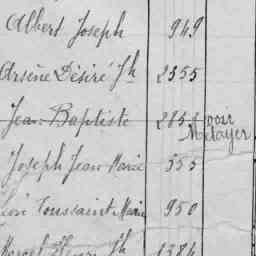 Albert Joseph 949
Arsène Désiré Jh 2355
Jean Baptiste voir
Métayer
Joseph Jean Marie 555
Toussaint Marie 950
Marcel Jh 1384